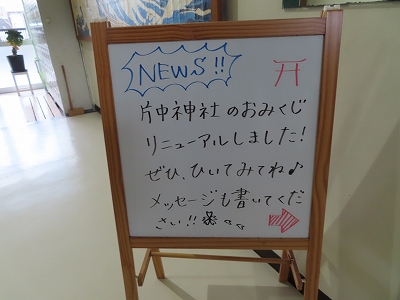 NEWS!!
片中神社のおみくじ
リニューアルしました!
ぜひ、ひいてみてね♪
メッセージも書いてくだ
さい!!